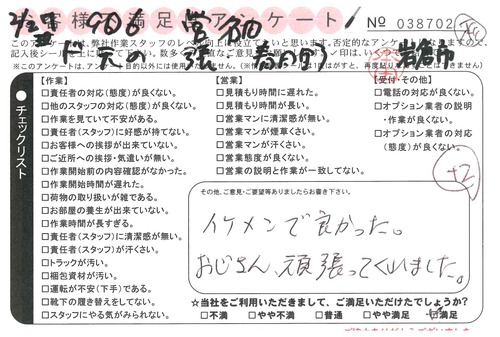 お客様満足アンケート
No 038702
【作業】
□責任者の対応(態度)が良くない。
□他のスタッフの対応(態度)が良くない。
□作業を見ていて不安がある。
□責任者(スタッフ)に好感が持てない。
□お客様への挨拶が出来ていない。
□ご近所への挨拶・気遣いが無い。
□作業開始前の内容確認がなかった。
□作業開始時間が遅れた。
□荷物の取り扱いが雑である。
□お部屋の養生が出来ていない。
□作業時間が長すぎる。
□責任者(スタッフ)に清潔感が無い。
□責任者(スタッフ)が汗くさい。
□トラックが汚い。
□梱包資材が汚い。
□運転が不安(下手)である。
□靴下の履き替えをしてない。
□スタッフにやる気がみられない。
【営業】
□見積もり時間に遅れた。
□見積もり時間が長い。
□営業マンに清潔感が無い。
□営業マンが煙草くさい。
□営業マンが汗くさい。
□営業態度が良くない。
□営業の説明と作業が一致してない。
【受付・その他】
□電話の対応が良くない。
□オプション業者の説明
・作業が良くない。
□オプション業者の対応
(態度)が良くない。
チェックリスト
その他、ご意見・ご要望等ありましたらお書き下さい。
イケメンで良かった。
おじさん、頑張ってくれました。
☆当社をご利用いただきまして、ご満足いただけたでしょうか?
□不満 □やや不満 □普通 □やや満足 □満足